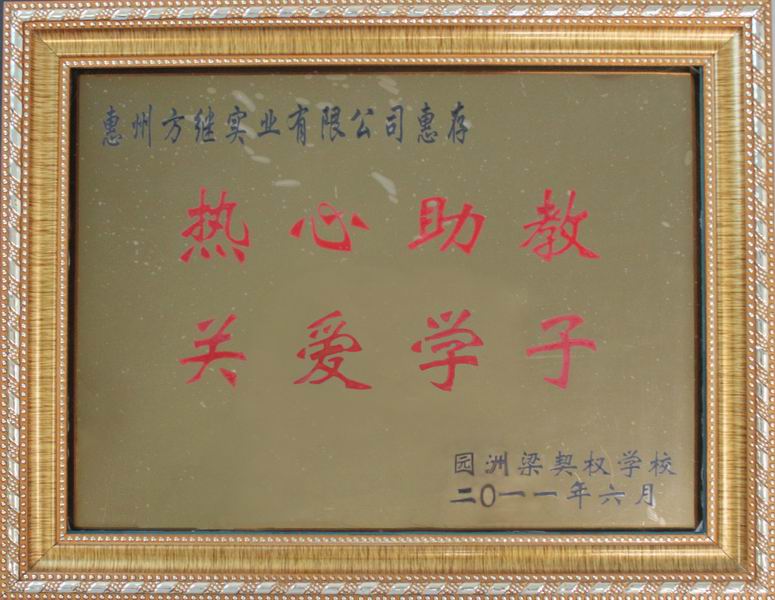 惠州方继实业有限公司惠存
热心助教
关爱学子
园洲梁契权学校
二〇一一年六月